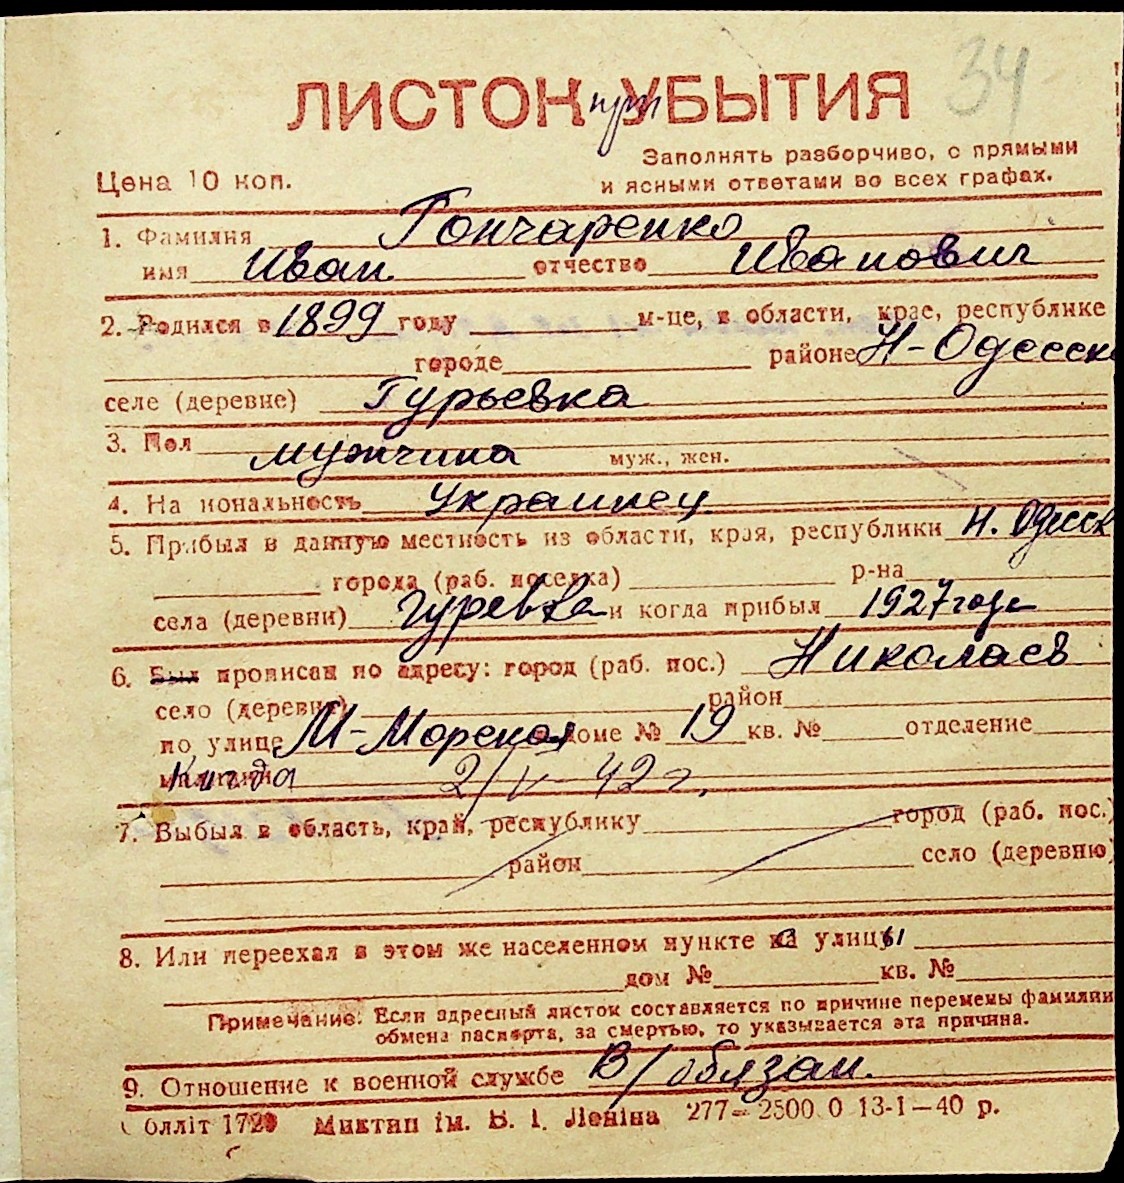 34
ЛИСТОК при УБЫТИЯ
Заполнять разборчиво, с прямыми
Цена 10 коп. и ясными ответами во всех графах.
1. Фамилия Гончаренко
имя Иван отчество Иванович
2. Родился в 1899 году м-це, в области, крае, республике
городе районе Н-Одесск
селе (деревне) Гурьевка
3. Пол мужчина муж., жен.
4. На иональность украинец
5. Прибыл в данную местность из области, края, республики Н. Одесск
города (раб. поселка) р-на
села (деревни) Гуревка и когда прибыл 1927 годе
6. Был прописан по адресу: город (раб. пос.) Николаев
село (деревня) район
по улице М-Морская доме № 19 кв. № отделение
милиции Когда 2/V-42 г.
7. Выбыл в область, край, республику город (раб. пос.)
район село (деревню)
8. Или переехал в этом же населенном пункте са улицы
дом № кв. №
Примечание: Если адресный листок составляется по причине перемены фамилии
обмена паспорта, за смертью, то указывается эта причина.
9. Отношение к военной службе В/обязан.
блліт 1729 Миктип ім. В. І. Леніна 277—2500.0 13-I—40 р.